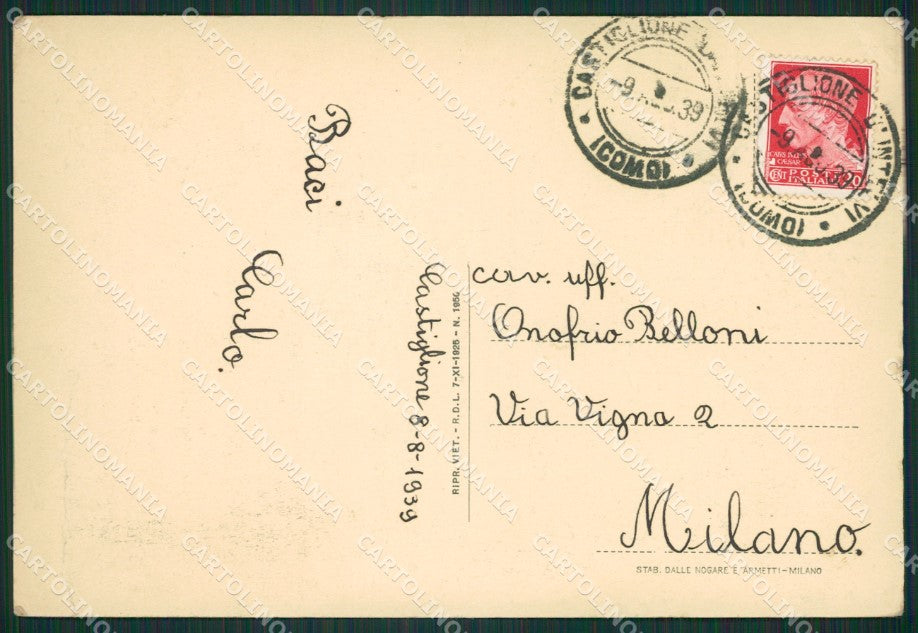 Baci
Carlo.
Castiglione 8-8-1939
RIPR. VIET. - R.D.L. 7-XI-1925 - N. 1950
cav. uff.
Onofrio Belloni
Via Vigna 2
Milano.
STAB. DALLE NOGARE E ARMETTI - MILANO
CASTIGLIONE D'INTELVI
(COMO)
-9. 39
CASTIGLIONE D'INTELVI
(COMO)
-9. 39
CAESAR
CENT POSTE 20
ITALIANE
CARTOLINOMANIA